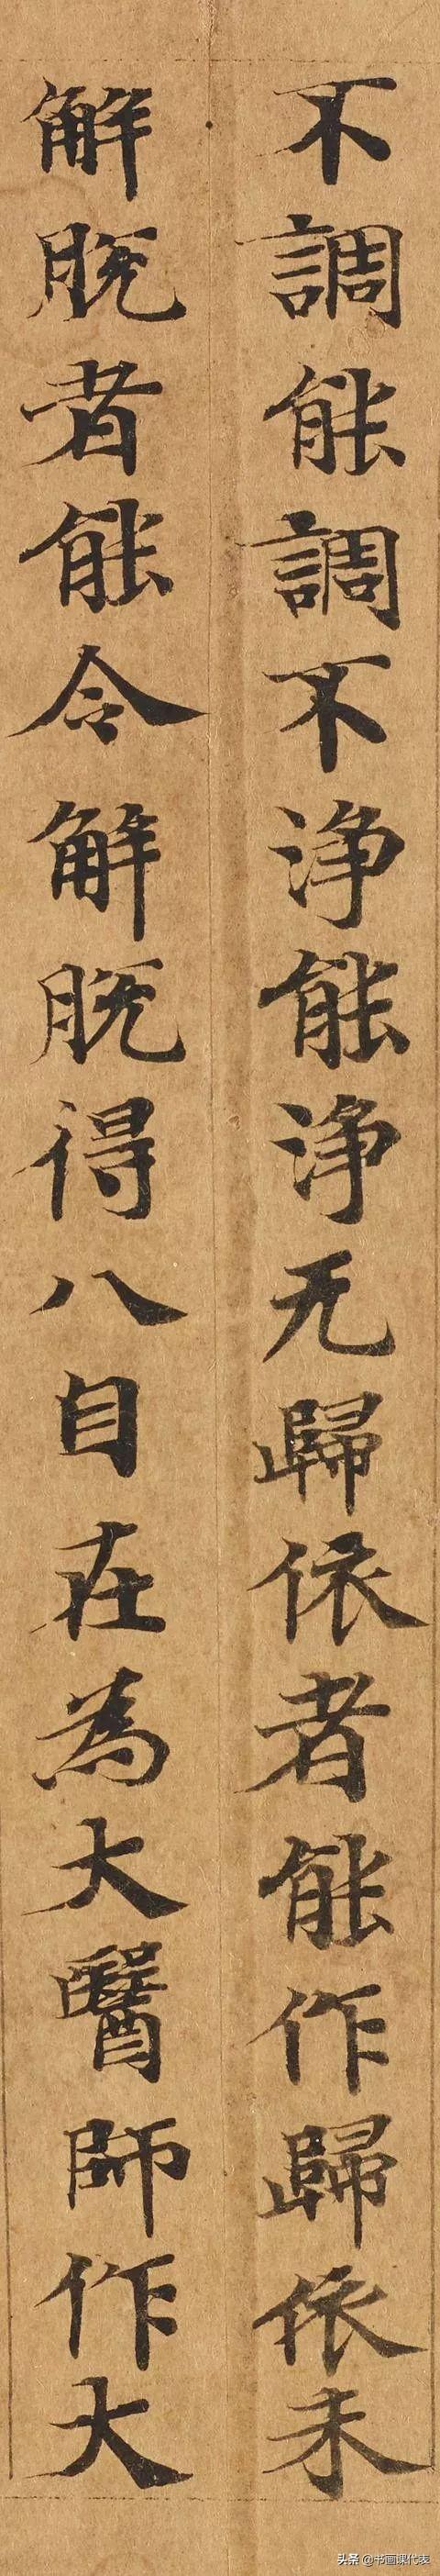 不調能調不淨能淨无歸依者能作歸依未
解脫者能令解脫得八自在為大醫師作大
头条 @书画课代表